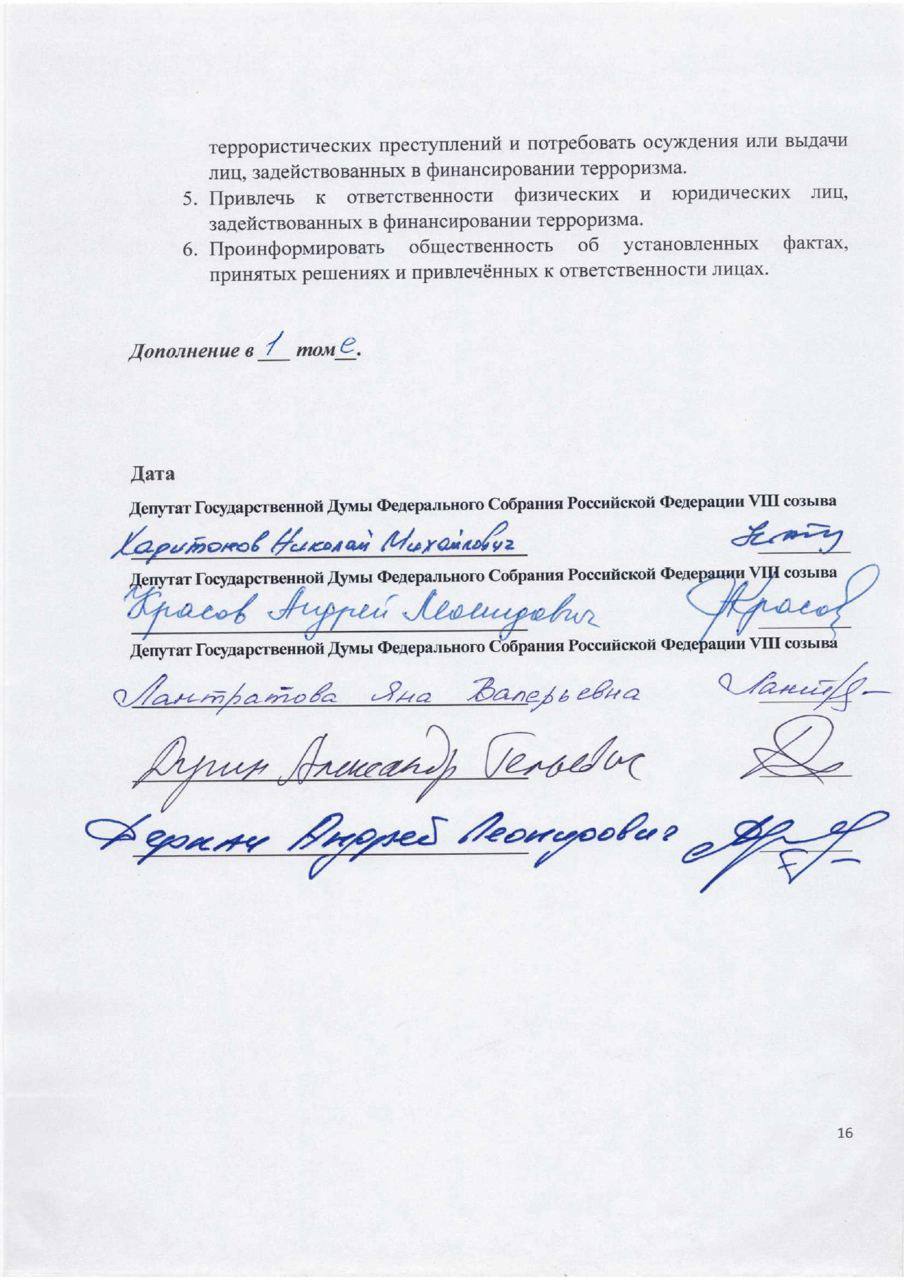 террористических преступлений и потребовать осуждения или выдачи
лиц, задействованных в финансировании терроризма.
5. Привлечь к ответственности физических и юридических лиц,
задействованных в финансировании терроризма.
6. Проинформировать общественность об установленных фактах,
принятых решениях и привлечённых к ответственности лицах.
Дополнение в 1 томе.
Дата
Депутат Государственной Думы Федерального Собрания Российской Федерации VIII созыва
Харитонов Николай Михайлович
Депутат Государственной Думы Федерального Собрания Российской Федерации VIII созыва
Красов Андрей Леонидович Красов
Депутат Государственной Думы Федерального Собрания Российской Федерации VIII созыва
Лантратова Яна Валерьевна
Дугин Александр Гельевич
Деркач Андрей Леонидович
16